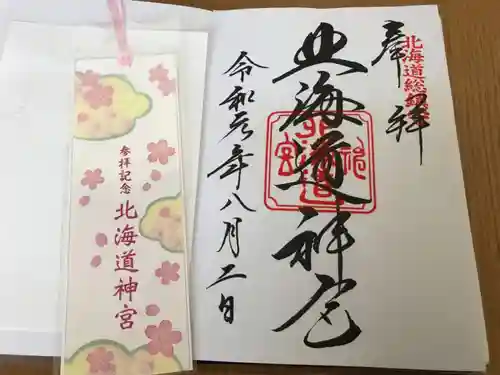 奉拝
北海道総鎮守
北海道神宮
令和元年八月二日
参拝記念
北海道神宮